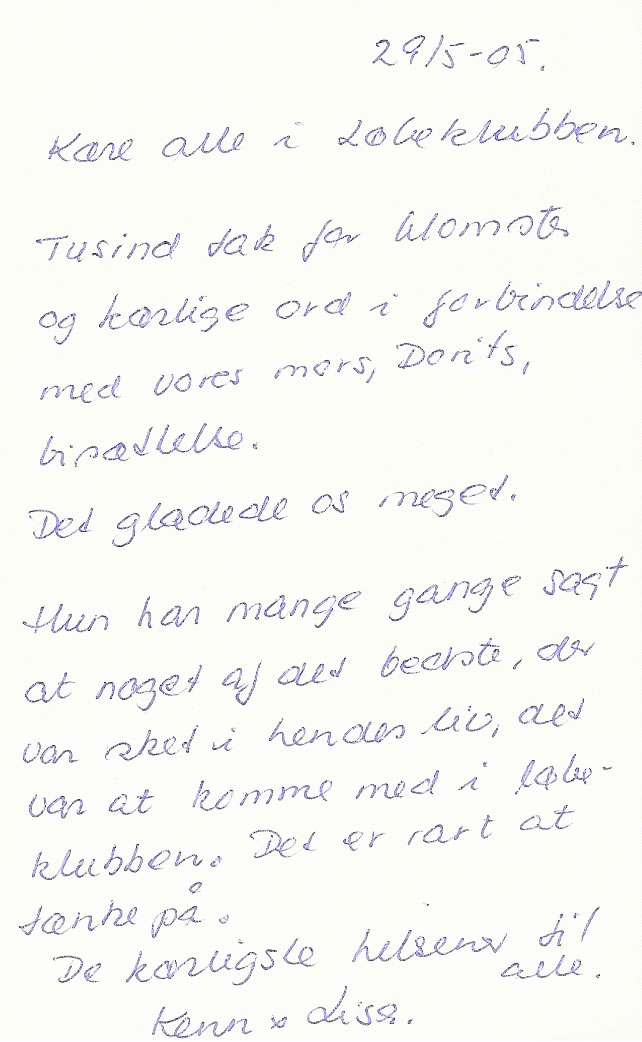 29/5-05.
Kære alle i Løbeklubben.
Tusind tak for blomster
og kærlige ord i forbindelse
med vores mors, Dorits,
bisættelse.
Det glædede os meget.
Hun har mange gange sagt
at noget af det bedste, der
var sket i hendes liv, det
var at komme med i løbe-
klubben. Det er rart at
tænke på.
De kærligste hilsener til
alle.
Kenn & Lisa.